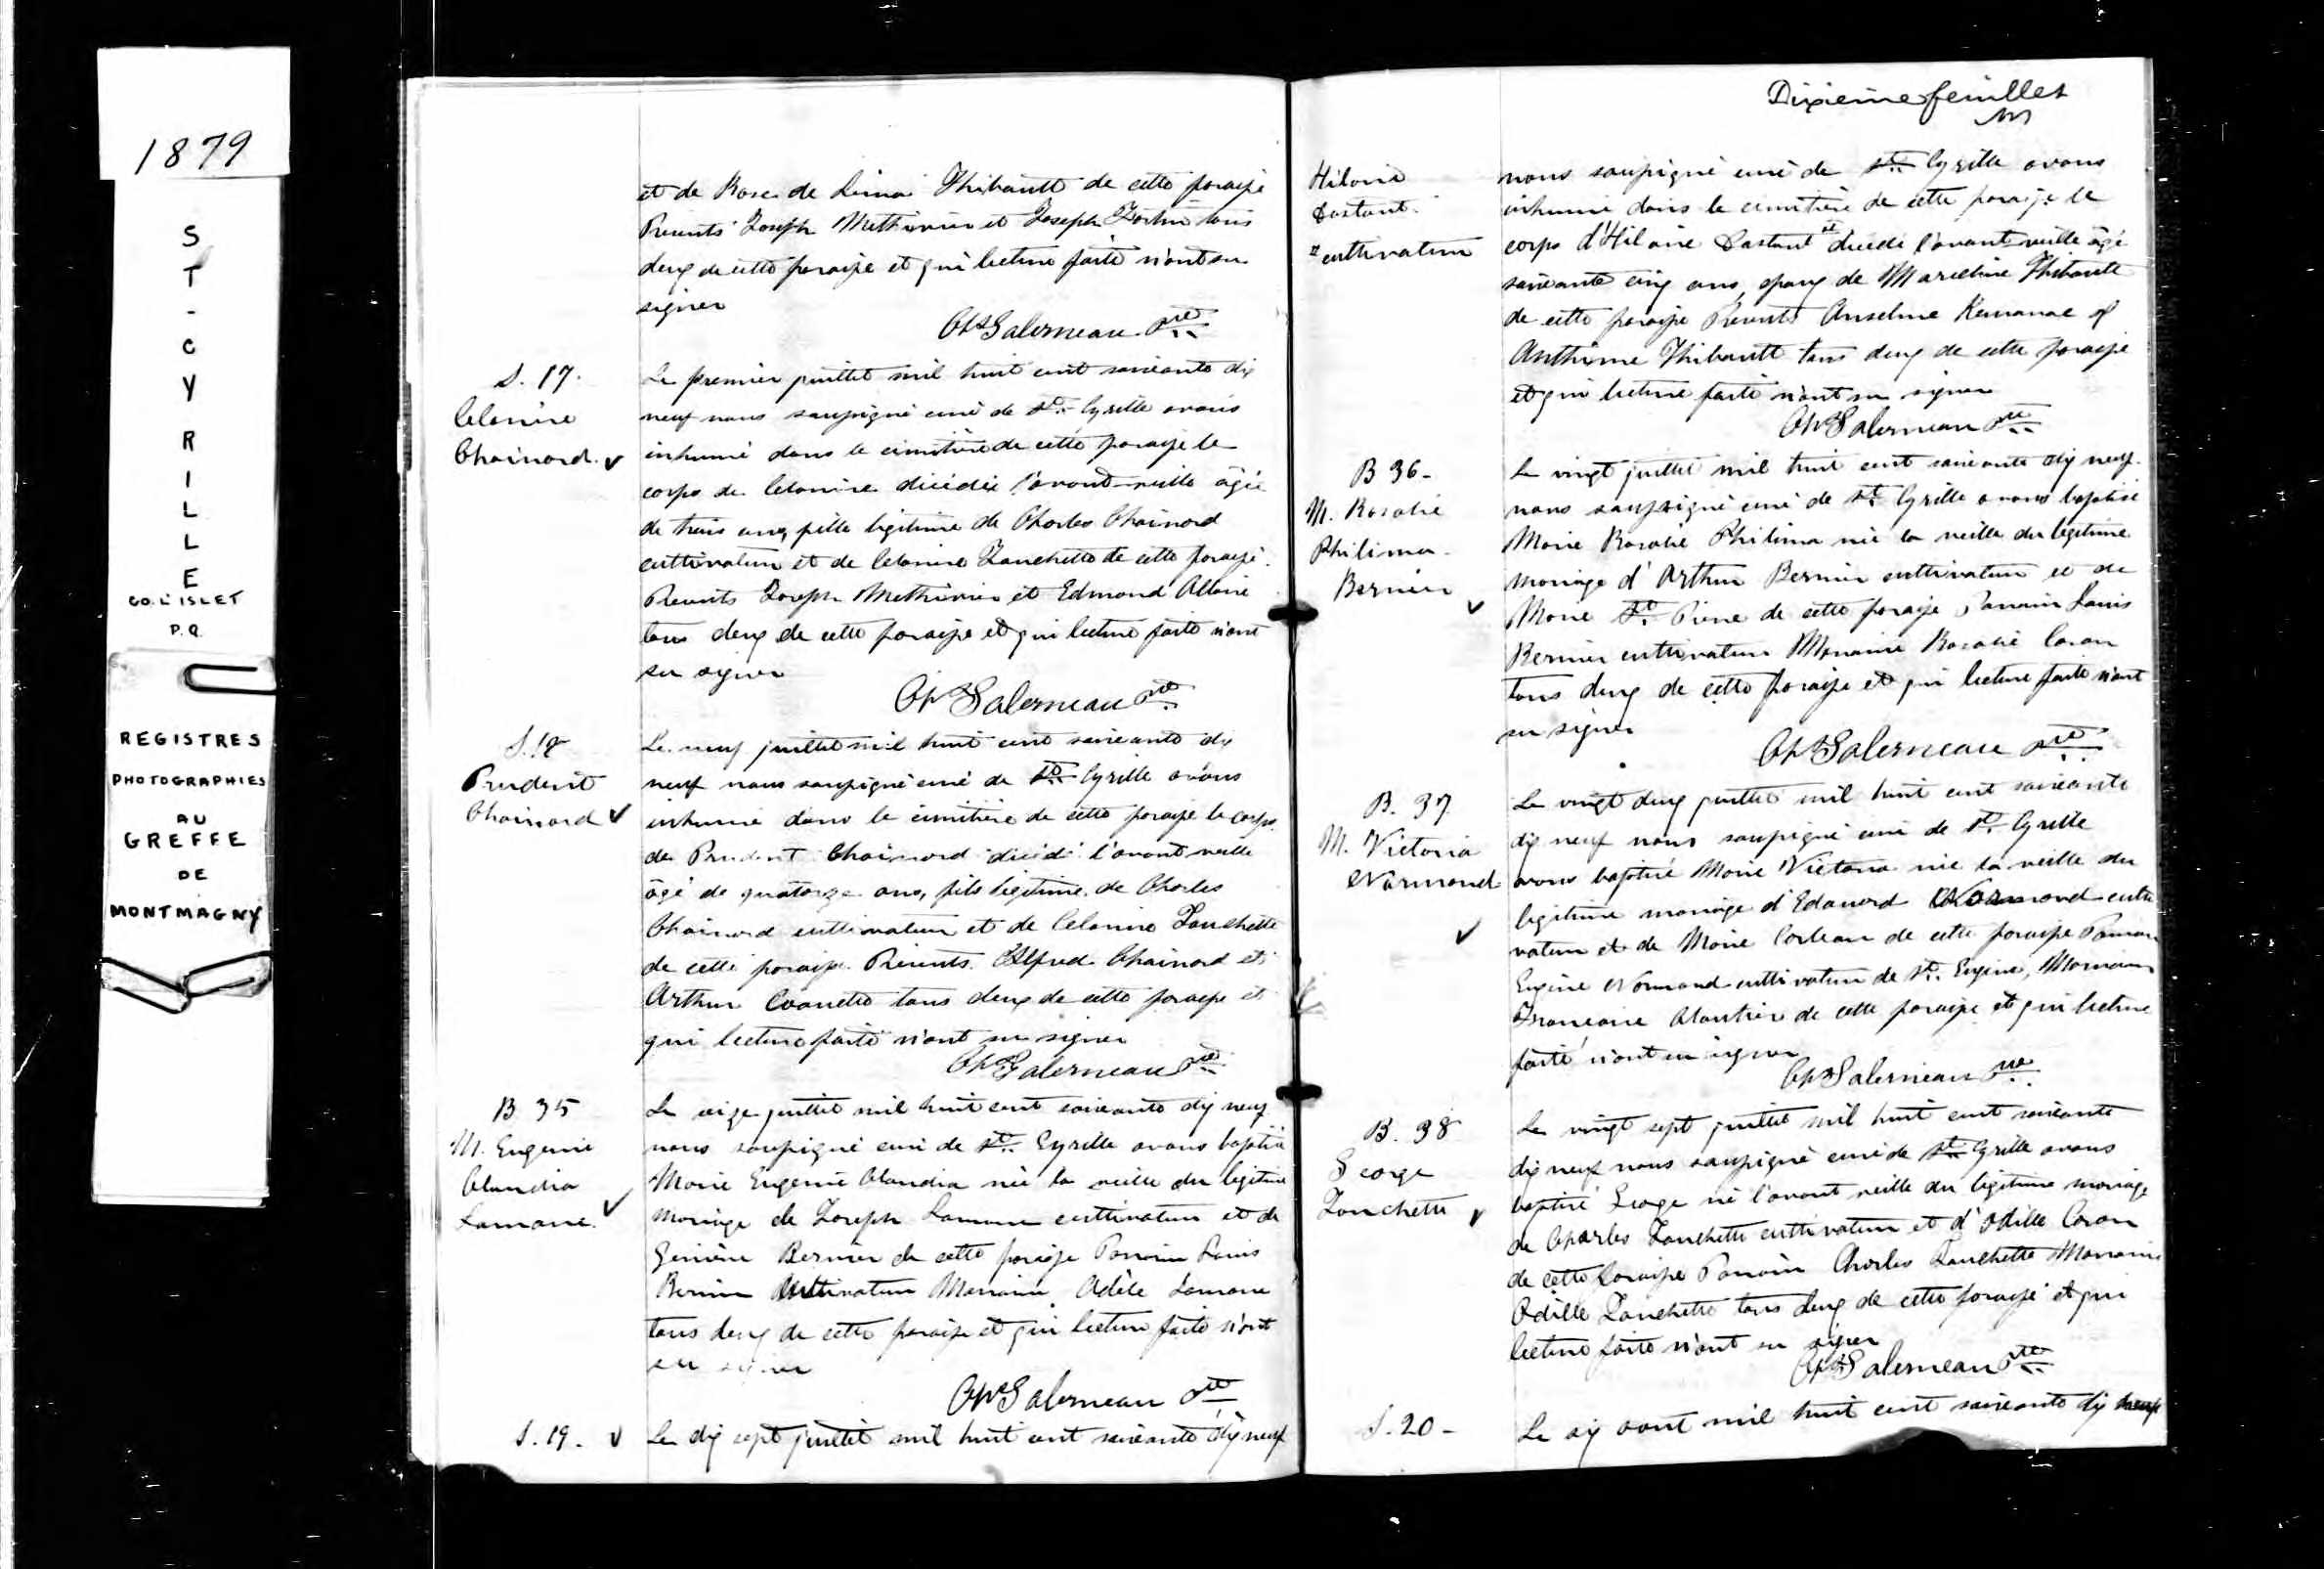 1879
ST-CYRILLE
CO. L'ISLET
P.Q.
REGISTRES
PHOTOGRAPHIES
AU
GREFFE
DE
MONTMAGNY
et de Rose de Lima Thibault de cette paroisse
Présents Joseph Methivier et Joseph Fortin tous
deux de cette paroisse et qui lecture faite n'ont su
signer
Chs Galerneau Ptre
S. 17.
Celanire
Chainard
Le premier juillet mil huit cent soixante dix
neuf nous soussigné curé de St. Cyrille avons
inhumé dans le cimitière de cette paroisse le
corps de Celanire décédée l'avant-veille âgée
de trois ans, fille légitime de Charles Chainard
cultivateur et de Celanire Fanchette de cette paroisse.
Présents Joseph Methivier et Edmond Allaire
tous deux de cette paroisse et qui lecture faite n'ont
su signer
Chs Galerneau Ptre
S. 18
Prudent
Chainard
Le neuf juillet mil huit cent soixante dix
neuf nous soussigné curé de St. Cyrille avons
inhumé dans le cimitière de cette paroisse le corps
de Prudent Chainard décédé l'avant veille
âgé de quatorze ans, fils légitime de Charles
Chainard cultivateur et de Celanire Fanchette
de cette paroisse. Présents Alfred Chainard et
Arthur tous deux de cette paroisse et
qui lecture faite n'ont su signer
Chs Galerneau Ptre
B 35
M. Eugenie
Claudia
Lamarre
Le seize juillet mil huit cent soixante dix neuf
nous soussigné curé de St. Cyrille avons baptisé
Marie Eugenie Claudia née la veille du légitime
mariage de Joseph Lamarre cultivateur et de
Bernier de cette paroisse Parrain Louis
Bernier cultivateur Marraine Adèle Lamarre
tous deux de cette paroisse et qui lecture faite n'ont
su signer
Chs Galerneau Ptre
S. 19.
Le dix sept juillet mil huit cent soixante dix neuf
Dixieme feuillet
Hilaire
# cultivateur
nous soussigné curé de St. Cyrille avons
inhumé dans le cimitière de cette paroisse le
corps d'Hilaire # décédé l'avant veille âgé
soixante cinq ans, époux de Marceline Thibault
de cette paroisse Présents Anselme et
Anthime Thibault tous deux de cette paroisse
et qui lecture faite n'ont su signer
Chs Galerneau Ptre
B 36-
M. Rosalie
Philima
Bernier
Le vingt juillet mil huit cent soixante dix neuf
nous soussigné curé de St. Cyrille avons baptisé
Marie Rosalie Philima née la veille du légitime
mariage d'Arthur Bernier cultivateur et de
Marie St. Pierre de cette paroisse Parrain Louis
Bernier cultivateur Marraine Rosalie Caron
tous deux de cette paroisse et qui lecture faite n'ont
su signer
Chs Galerneau Ptre
B. 37
M. Victoria
Normand
Le vingt deux juillet mil huit cent soixante
dix neuf nous soussigné curé de St. Cyrille
avons baptisé Marie Victoria née la veille du
légitime mariage d'Edouard Normand culti
vateur et de Marie de cette paroisse Parrain
Eugène Normand cultivateur de St. Eugène, Marraine
Françoise Cloutier de cette paroisse et qui lecture
faite n'ont su signer
Chs Galerneau Ptre
B. 38
George
Fanchette
Le vingt sept juillet mil huit cent soixante
dix neuf nous soussigné curé de St. Cyrille avons
baptisé George né l'avant veille du légitime mariage
de Charles Fanchette cultivateur et d'Odille Caron
de cette paroisse Parrain Charles Fanchette Marraine
Odille Fanchette tous deux de cette paroisse et qui
lecture faite n'ont su signer
Chs Galerneau Ptre
S. 20-
Le six aout mil huit cent soixante dix neuf